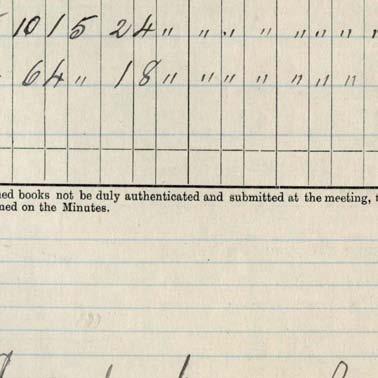 10 1 5 24 " " " " " " "
64 " 18 " " " " " " "
ned books not be duly authenticated and submitted at the meeting, t
ned on the Minutes.